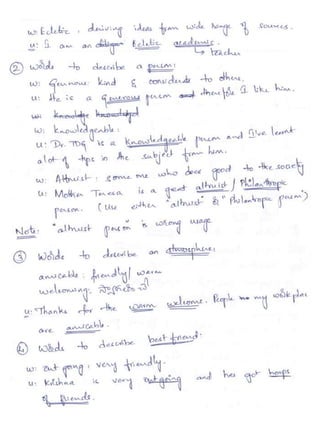 w: Ecletic : deriving ideas from wide range of sources.
u: I am an Ecletic academic.
→ teacher
② Words to describe a person:
w: Generous: kind & considerate to others.
u: He is a Generous person and therefore I like him.
w: Knowledgeable:
u: Dr. TDG is a Knowledgeable person and I've learnt
a lot of tips in the subject from him.
w: Altruist: some one who does good to the society
u: Mother Teresa is a great altruist / Philantropic
person. (Use either "altruist" & "Philantropic person")
Note: "altruist person" is wrong usage
③ Words to describe an atmosphere:
amicable: friendly/ warm
welcoming:
u: Thanks for the warm welcome. People my work place
are amicable.
④ Words to describe best friend:
w: out going: very friendly.
u: Krishna is very outgoing and has got heaps
of friends.